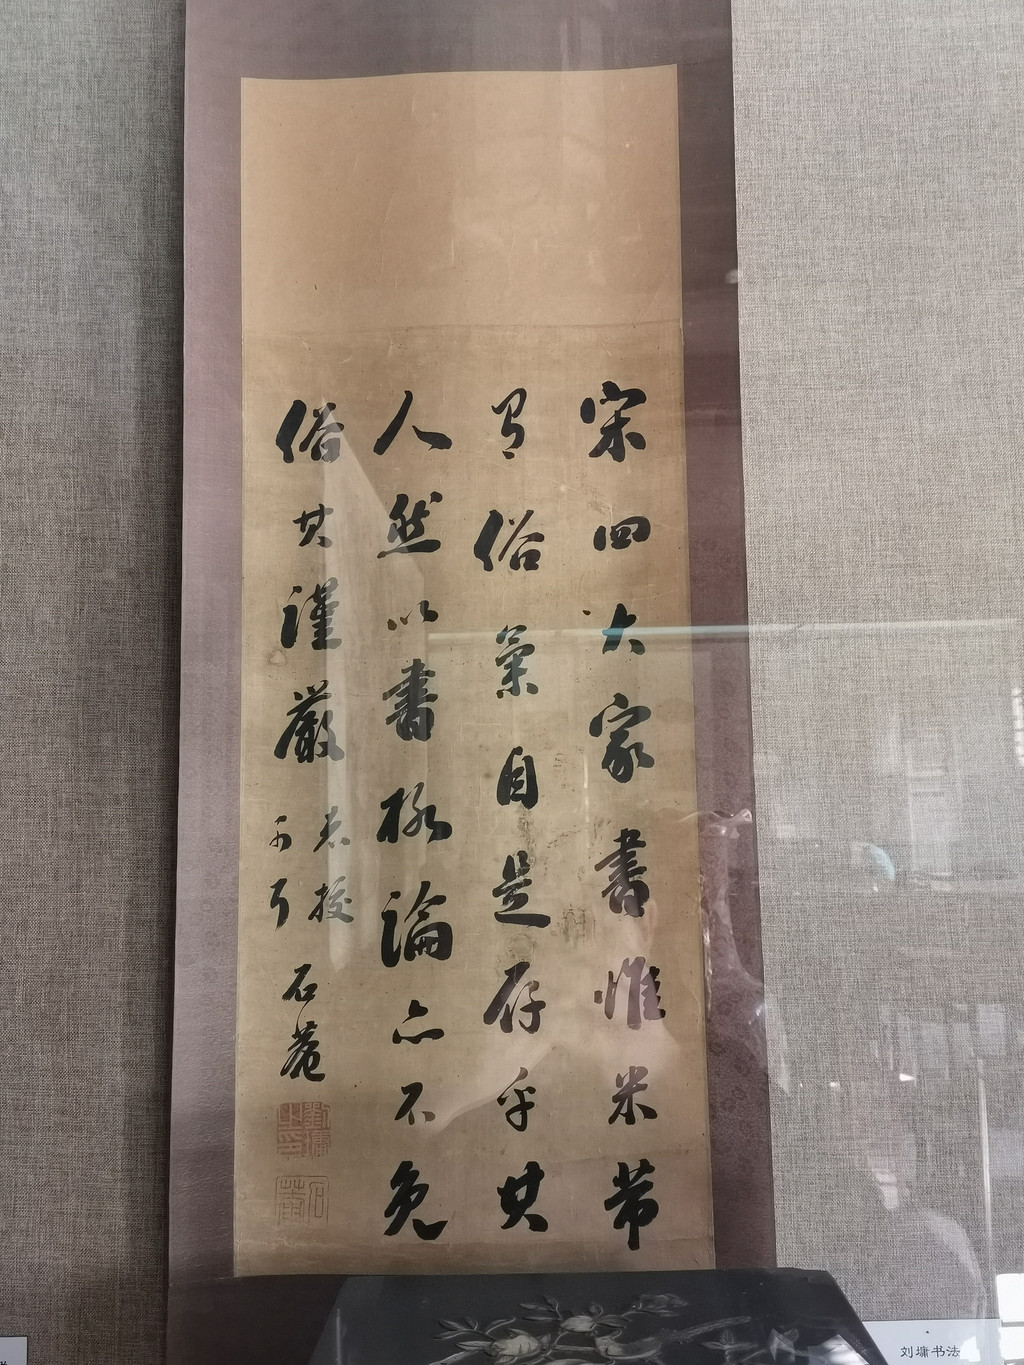 宋四大家書惟米芾
有俗氣自是存乎其
人然以書極論亦不免
俗其謹嚴
石菴
劉墉之印
石菴
刘墉书法